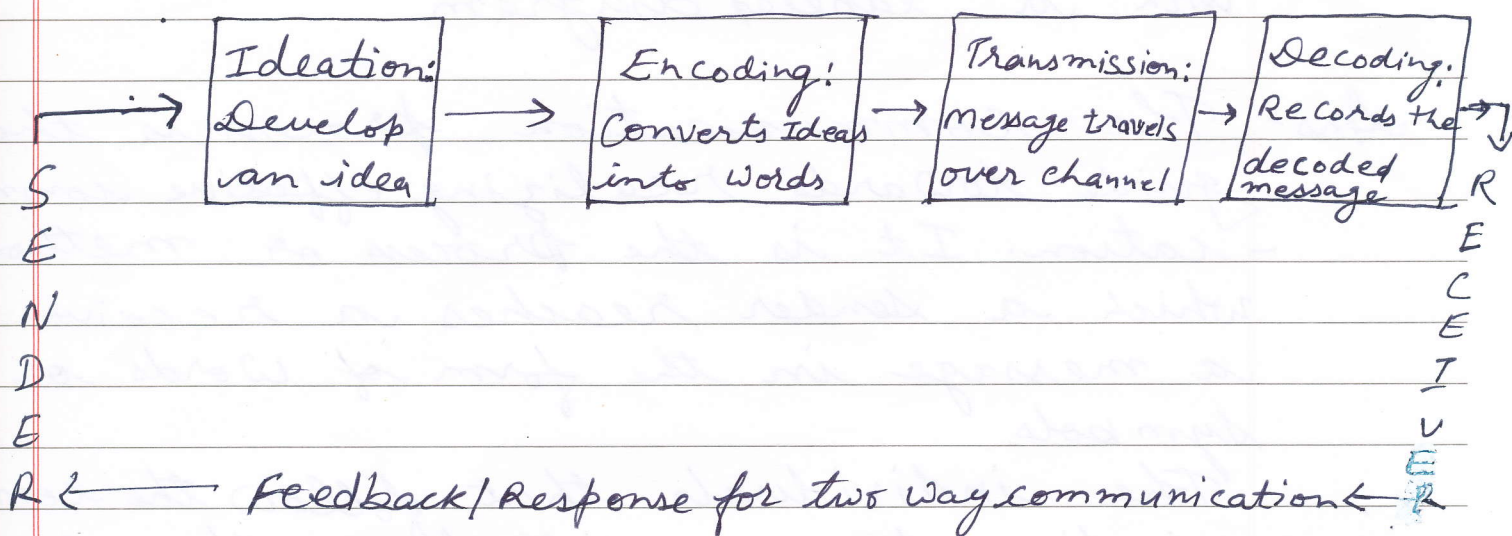 Ideation:
Develop
an idea
Encoding:
Converts Ideas
into words
Transmission:
message travels
over channel
Decoding:
Records the
decoded
message
SENDER
RECEIVER
Feedback/Response for two way communication